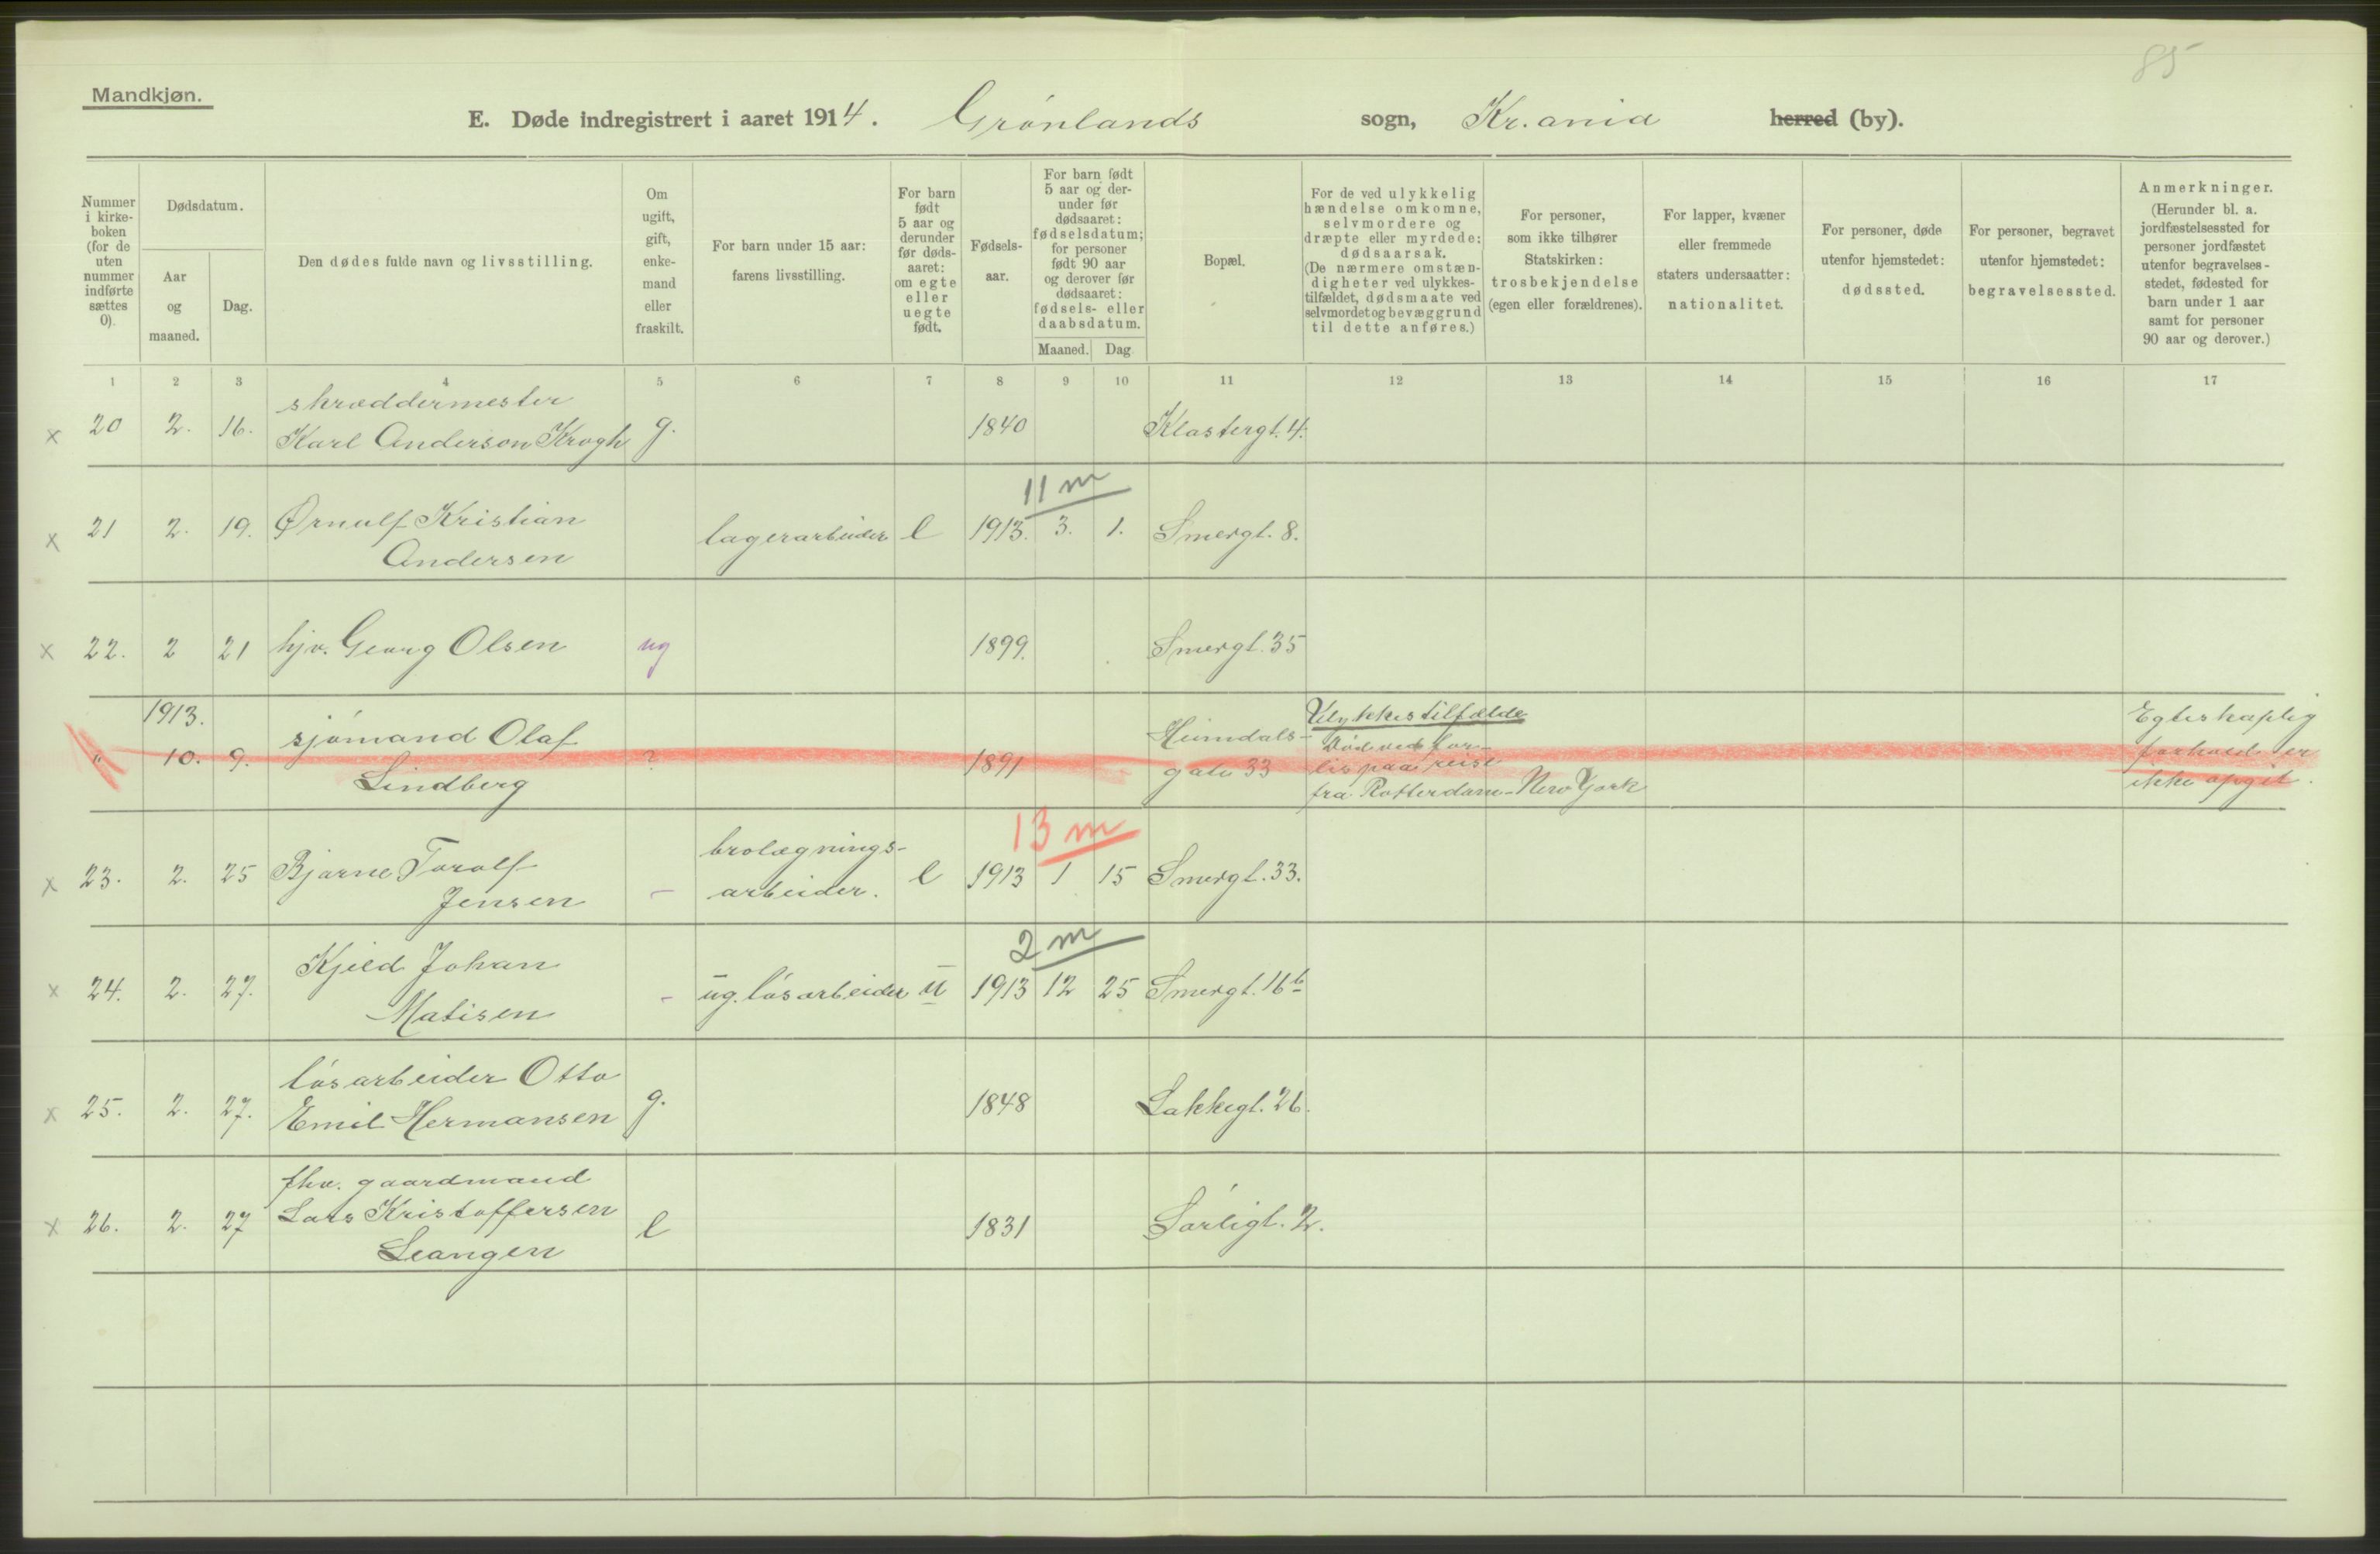 85
Mandkjøn.
E. Døde indregistrert i aaret 1914. Grønlands sogn, Kr.ania herred (by).
Nummer i kirke- boken (for de uten nummer indførte sættes 0).
Dødsdatum.
Aar og maaned.
Dag.
Den dødes fulde navn og livsstilling.
Om ugift, gift, enke- mand eller fraskilt.
For barn under 15 aar: farens livsstilling.
For barn født 5 aar og derunder før døds- aaret: om egte eller uegte født.
Fødsels- aar.
For barn født 5 aar og der- under før dødsaaret: fødselsdatum; for personer født 90 aar og derover før dødsaaret: fødsels- eller daabsdatum.
Maaned. Dag.
Bopæl.
For de ved ulykkelig hændelse omkomne, selvmordere og dræpte eller myrdede: dødsaarsak. (De nærmere omstæn- digheter ved ulykkes- tilfældet, dødsmaate ved selvmordet og bevæggrund til dette anføres.)
For personer, som ikke tilhører Statskirken: trosbekjendelse (egen eller forældrenes).
For lapper, kvæner eller fremmede staters undersaatter: nationalitet.
For personer, døde utenfor hjemstedet: dødssted.
For personer, begravet utenfor hjemstedet: begravelsessted.
Anmerkninger. (Herunder bl. a. jordfæstelsessted for personer jordfæstet utenfor begravelses- stedet, fødested for barn under 1 aar samt for personer 90 aar og derover.)
1 2 3 4 5 6 7 8 9 10 11 12 13 14 15 16 17
skræddermester
x 20 2. 16. Karl Anderson Krogh g. 1840 Klostergt. 4.
11 m
x 21 2. 19. Ørnulf Kristian lagerarbeider e 1913. 3. 1. Smergt. 8.
Andersen
x 22. 2 21 hjv. Georg Olsen ug 1899. Smergt. 35
1913. Ulykkestilfælde Egteskaplig
" 10. 9. sjømand Olaf ? 1891 Heimdals- Død ved for- forhold er
Lindberg gate 33 lis paa reise ikke opgit.
fra Rotterdam-New York
13 m
x 23. 2. 25 Bjarne Toralf - brolægnings- e 1913 1 15 Smergt. 33.
Jensen arbeider.
2 m
x 24. 2. 27. Kjeld Johan - ug. løsarbeider u 1913 12 25 Smergt. 16b
Matisen
løsarbeider Otto
x 25. 2. 27. Emil Hermansen g. 1848 Lakkegt. 26.
fhv. gaardmand
x 26. 2. 27 Lars Kristoffersen e 1831 Sørligt. 2.
Leangen